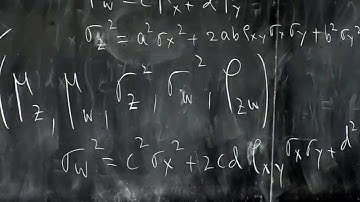 σ_z² = a²σ_x² + 2abρ_xyσ_xσ_y + b²σ_y²
(μ_z, μ_w, σ_z², σ_w², ρ_zw)
σ_w² = c²σ_x² + 2cdρ_xyσ_xσ_y + d²